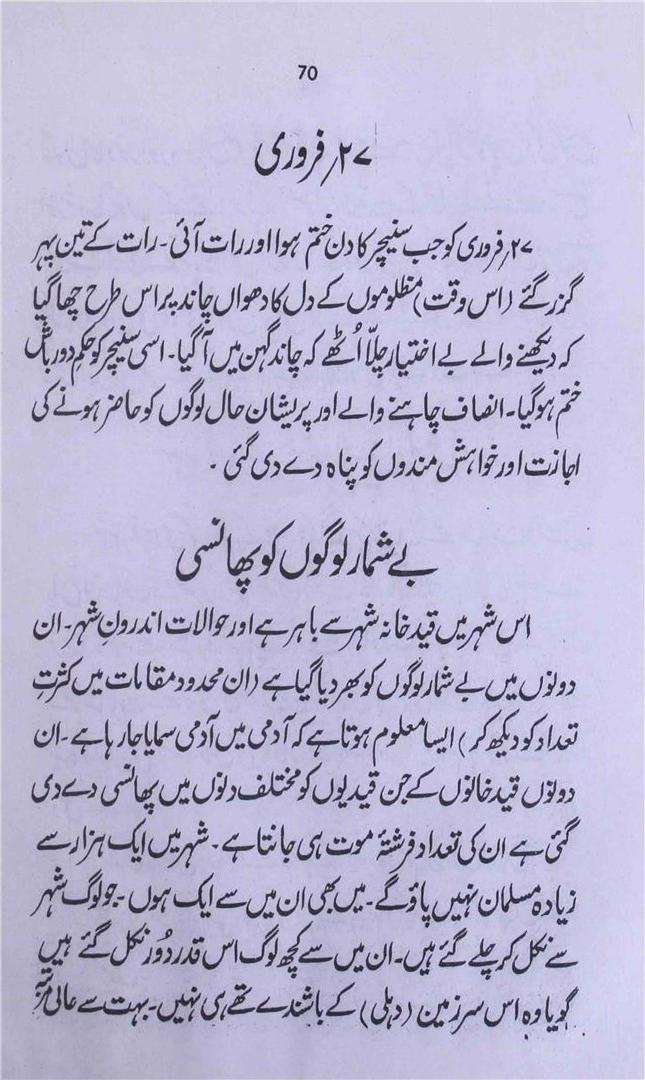 70
۲۷؍ فروری
۲۷؍ فروری کو جب سنیچر کا دن ختم ہوا اور رات آئی۔ رات کے تین پہر
گزر گئے (اس وقت) مظلوموں کے دل کا دھواں چاند پر اس طرح چھا گیا
کہ دیکھنے والے بے اختیار چلّا اُٹھے کہ چاند گہن میں آگیا۔ اسی سنیچر کو حکمِ دور باش
ختم ہوگیا۔ انصاف چاہنے والے اور پریشان حال لوگوں کو حاضر ہونے کی
اجازت اور خواہش مندوں کو پناہ دے دی گئی ۔
بے شمار لوگوں کو پھانسی
اس شہر میں قید خانہ شہر سے باہر ہے اور حوالات اندرونِ شہر۔ ان
دونوں میں بے شمار لوگوں کو بھر دیا گیا ہے (ان محدود مقامات میں کثرتِ
تعداد کو دیکھ کر) ایسا معلوم ہوتا ہے کہ آدمی میں آدمی سمایا جا رہا ہے۔ ان
دونوں قید خانوں کے جن قیدیوں کو مختلف دنوں میں پھانسی دے دی
گئی ہے ان کی تعداد فرشتۂ موت ہی جانتا ہے۔ شہر میں ایک ہزار سے
زیادہ مسلمان نہیں پاؤ گے۔ میں بھی ان میں سے ایک ہوں۔ جو لوگ شہر
سے نکل کر چلے گئے ہیں۔ ان میں سے کچھ لوگ اس قدر دُور نکل گئے ہیں
گویا وہ اس سرزمین (دہلی) کے باشندے تھے ہی نہیں۔ بہت سے عالی مرتبہ